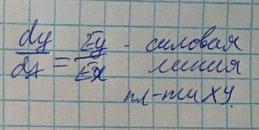 dy/dx = Ey/Ex - силовая
линия
пл-ти XY.